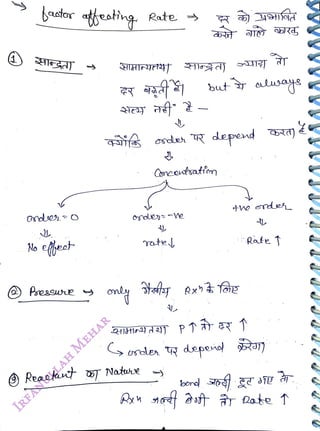 factor affecting Rate → दर को प्रभावित
करने वाले कारक
① सान्द्रता → सामान्यतया सान्द्रता ज्यादा तो
दर बढ़ती है। but ये always
सत्य नहीं है –
⇓
क्योंकि order पर depend करता है
⇓
Concentration
order = 0 order = -ve +ve order
⇓ ⇓ ⇓
No effect rate↓ Rate ↑
② Pressure → only गैसीय Rxⁿ के लिए
⇓
सामान्यतया P ↑ तो दर ↑
↳ order पर depend करेगा)
③ Reactant का Nature → bond जल्दी टूट गए तो
Rxⁿ जल्दी होगी तो Rate ↑
IRFANULLAH MEHAR